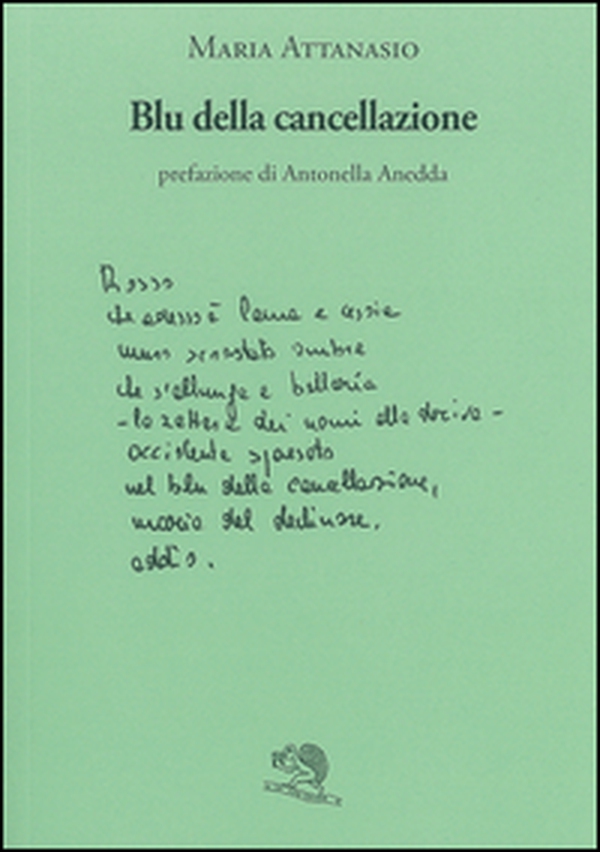 MARIA ATTANASIO
Blu della cancellazione
prefazione di Antonella Anedda
Rosso
che adesso è lama e
muro scrostato ombra
che s'allunga e
- la zattera dei nomi alla deriva -
occidente spaesato
nel blu della cancellazione,
del declinare,
addio.